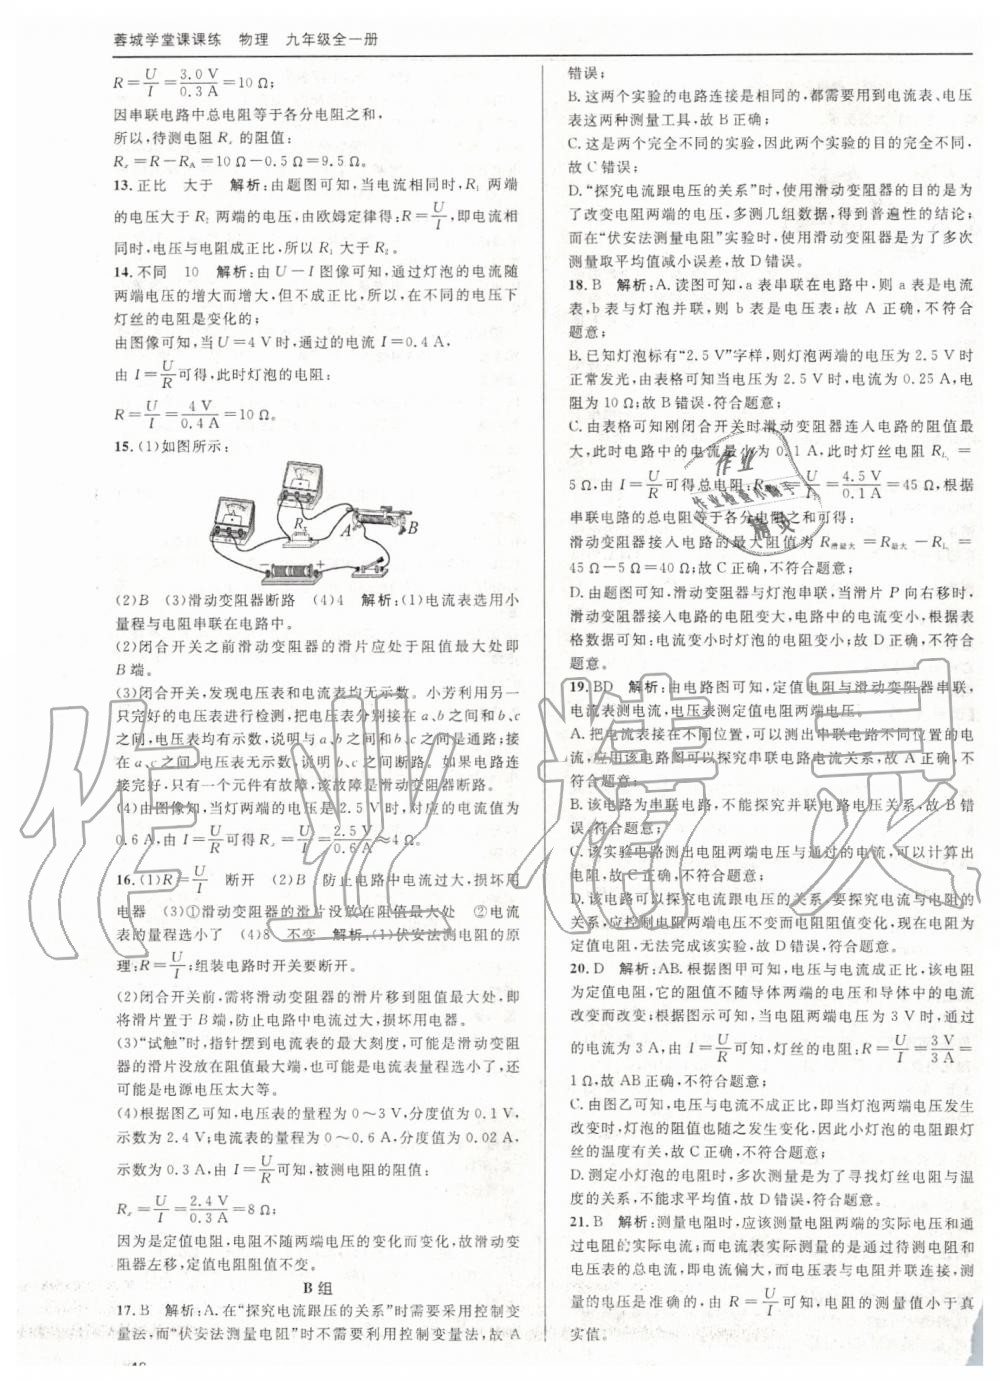 蓉城学堂课课练　物理　九年级全一册
R＝U/I＝3.0 V/0.3 A＝10 Ω;
因串联电路中总电阻等于各分电阻之和,
所以,待测电阻 Rₓ 的阻值:
Rₓ＝R－R_A＝10 Ω－0.5 Ω＝9.5 Ω。
13.正比　大于　解析:由题图可知,当电流相同时,R₁ 两端
的电压大于 R₂ 两端的电压,由欧姆定律得:R＝U/I,即电流相
同时,电压与电阻成正比,所以 R₁ 大于 R₂。
14.不同　10　解析:由 U－I 图像可知,通过灯泡的电流随
两端电压的增大而增大,但不成正比,所以,在不同的电压下
灯丝的电阻是变化的;
由图像可知,当 U＝4 V 时,通过的电流 I＝0.4 A,
由 I＝U/R可得,此时灯泡的电阻:
R＝U/I＝4 V/0.4 A＝10 Ω。
15.(1)如图所示:
Rₓ A B
－ ＋
(2)B　(3)滑动变阻器断路　(4)4　解析:(1)电流表选用小
量程与电阻串联在电路中。
(2)闭合开关之前滑动变阻器的滑片应处于阻值最大处即
B 端。
(3)闭合开关,发现电压表和电流表均无示数。小芳利用另一
只完好的电压表进行检测,把电压表分别接在 a、b 之间和 b、c
之间,电压均有示数,说明 a、b 之间和 b、c 之间是通路;接
在 a、c 之间,电压表无示数,说明 a、c 之间断路。如果电路连
接完好,只有一个元件有故障,该故障是滑动变阻器断路。
(4)由图像知,当灯两端的电压是 2.5 V 时,对应的电流值为
0.6 A,由 I＝U/R可得 Rₓ＝U/I＝2.5 V/0.6 A≈4 Ω。
16.(1)R＝U/I　断开　(2)B　防止电路中电流过大,损坏用
电器　(3)①滑动变阻器的滑片没放在阻值最大处　②电流
表的量程选小了　(4)8　不变　解析:(1)伏安法测电阻的原
理:R＝U/I;组装电路时开关要断开。
(2)闭合开关前,需将滑动变阻器的滑片移到阻值最大处,即
将滑片置于 B 端,防止电路中电流过大,损坏用电器。
(3)“试触”时,指针摆到电流表的最大刻度,可能是滑动变阻
器的滑片没放在阻值最大端,也可能是电流表量程选小了,还
可能是电源电压太大等。
(4)根据图乙可知,电压表的量程为 0～3 V,分度值为 0.1 V,
示数为 2.4 V;电流表的量程为 0～0.6 A,分度值为 0.02 A,
示数为 0.3 A,由 I＝U/R可知,被测电阻的阻值:
Rₓ＝U/I＝2.4 V/0.3 A＝8 Ω;
因为是定值电阻,电阻不随两端电压的变化而变化,故滑动变
阻器左移,定值电阻阻值不变。
B 组
17.B　解析:A.在“探究电流跟电压的关系”时需要采用控制变
量法,而“伏安法测量电阻”时不需要利用控制变量法,故 A
错误;
B.这两个实验的电路连接是相同的,都需要用到电流表、电压
表这两种测量工具,故 B 正确;
C.这是两个完全不同的实验,因此两个实验的目的完全不同,
故 C 错误;
D.“探究电流跟电压的关系”时,使用滑动变阻器的目的是为
了改变电阻两端的电压,多测几组数据,得到普遍性的结论;
而在“伏安法测量电阻”实验时,使用滑动变阻器是为了多次
测量取平均值减小误差,故 D 错误。
18.B　解析:A.读图可知,a 表串联在电路中,则 a 表是电流
表,b 表与灯泡并联,则 b 表是电压表;故 A 正确,不符合
题意;
B.已知灯泡标有“2.5 V”字样,则灯泡两端的电压为 2.5 V 时
正常发光,由表格可知当电压为 2.5 V 时,电流为 0.25 A,电
阻为 10 Ω;故 B 错误,符合题意;
C.由表格可知刚闭合开关时滑动变阻器连入电路的电阻最
大,此时电路中的电流最小为 0.1 A,此时灯丝电阻 R_L＝
5 Ω,由 I＝U/R可得总电阻:R＝U/I＝4.5 V/0.1 A＝45 Ω,根据
串联电路的总电阻等于各分电阻之和可得:
滑动变阻器接入电路的最大阻值为 R滑最大＝R最大－R_L＝
45 Ω－5 Ω＝40 Ω;故 C 正确,不符合题意;
D.由图可知,滑动变阻器与灯泡串联,当滑片 P 向右移时,
滑动变阻器接入电路的电阻变大,电路中的电流变小,根据表
格数据可知:电流变小时灯泡的电阻变小;故 D 正确,不符合
题意。
19.BD　解析:由电路图可知,定值电阻与滑动变阻器串联,
电流表测电流,电压表测定值电阻两端电压。
A.把电流表接在不同位置,可以测出串联电路不同位置的电
流,应用该电路图可以探究串联电路电流关系,故 A 正确,不
符合题意;
B.该电路为串联电路,不能探究并联电路电压关系,故 B 错
误,符合题意;
C.该实验电路测出电阻两端电压与通过的电流,可以计算出
电阻,故 C 正确,不符合题意;
D.该电路可以探究电流跟电压的关系,探究电流与电阻的
关系,应控制电阻两端电压不变而电阻阻值变化,现在电阻为
定值电阻,无法完成该实验,故 D 错误,符合题意。
20.D　解析:AB.根据图甲可知,电压与电流成正比,该电阻
为定值电阻,它的阻值不随导体两端的电压和导体中的电流
改变而改变;根据图示可知,当电阻两端电压为 3 V 时,通过
的电流为 3 A,由 I＝U/R可知,灯丝的电阻:R＝U/I＝3 V/3 A＝
1 Ω,故 AB 正确,不符合题意;
C.由图乙可知,电压与电流不成正比,即当灯泡两端电压发生
改变时,灯泡的电阻也随之发生变化,因此小灯泡的电阻跟灯
丝的温度有关,故 C 正确,不符合题意;
D.测定小灯泡的电阻时,多次测量是为了寻找灯丝电阻与温
度的关系,不能求平均值,故 D 错误,符合题意。
21.B　解析:测量电阻时,应该测量电阻两端的实际电压和通
过电阻的实际电流;而电流表实际测量的是通过待测电阻和
电压表的总电流,即电流偏大,而电压表与电阻并联连接,测
量的电压是准确的,由 R＝U/I可知,电阻的测量值小于真
实值。
作业
作业检查小助手
精灵
作业精灵